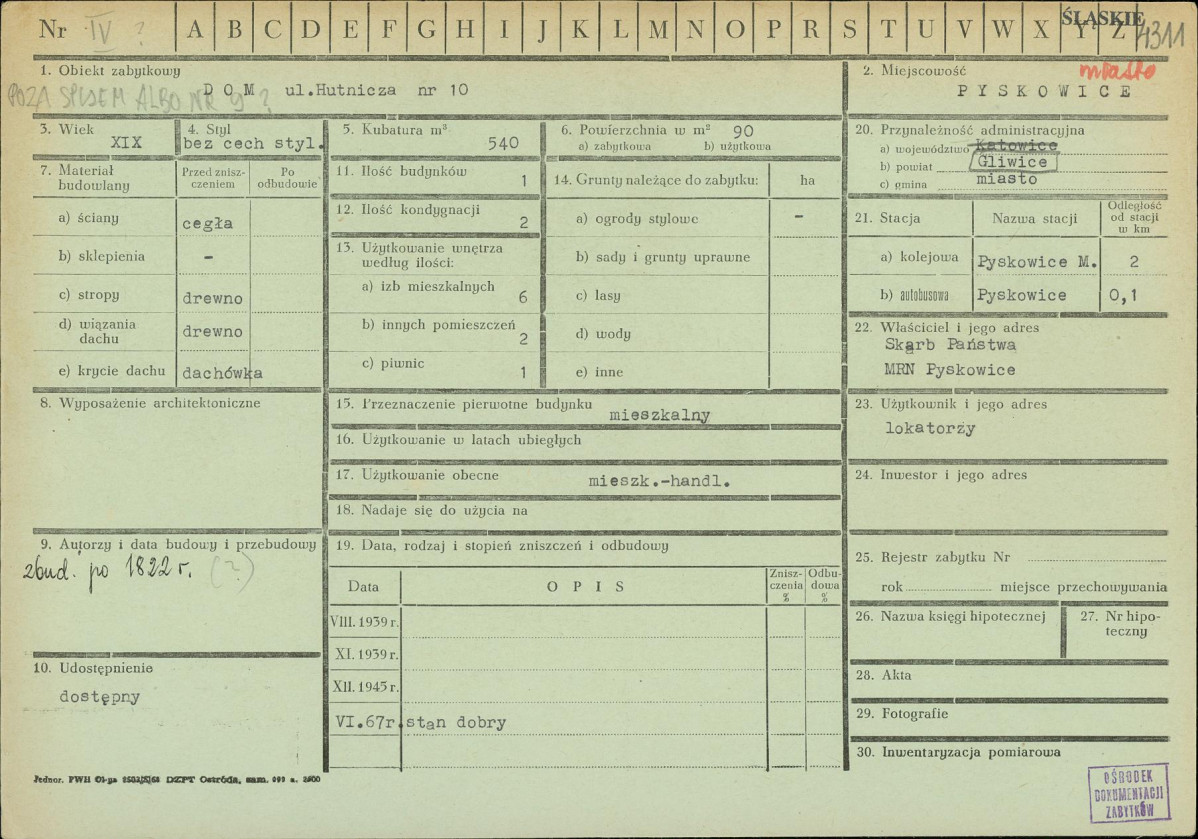 Nr IV ? A B C D E F G H I J K L M N O P R S T U V W X Y Z ŚLĄSKIE 4311
1. Obiekt zabytkowy
POZA SPISEM ALBO NR 9 ?
DOM ul.Hutnicza nr 10
2. Miejscowość miasto
PYSKOWICE
3. Wiek
XIX
4. Styl
bez cech styl.
5. Kubatura m³
540
6. Powierzchnia w m² 90
a) zabytkowa b) użytkowa
7. Materiał budowlany
Przed zniszczeniem
Po odbudowie
a) ściany cegła
b) sklepienia –
c) stropy drewno
d) wiązania dachu drewno
e) krycie dachu dachówka
8. Wyposażenie architektoniczne
9. Autorzy i data budowy i przebudowy
zbud. po 1822 r. (?)
10. Udostępnienie
dostępny
11. Ilość budynków 1
12. Ilość kondygnacji 2
13. Użytkowanie wnętrza
według ilości:
a) izb mieszkalnych 6
b) innych pomieszczeń 2
c) piwnic 1
14. Grunty należące do zabytku: ha
a) ogrody stylowe –
b) sady i grunty uprawne
c) lasy
d) wody
e) inne
15. Przeznaczenie pierwotne budynku
mieszkalny
16. Użytkowanie w latach ubiegłych
17. Użytkowanie obecne mieszk.-handl.
18. Nadaje się do użycia na
19. Data, rodzaj i stopień zniszczeń i odbudowy
Data OPIS Zniszczenia % Odbudowa %
VIII. 1939 r.
XI. 1939 r.
XII. 1945 r.
VI.67r. stan dobry
20. Przynależność administracyjna
a) województwo Katowice
b) powiat Gliwice
c) gmina miasto
21. Stacja Nazwa stacji Odległość od stacji w km
a) kolejowa Pyskowice M. 2
b) autobusowa Pyskowice 0,1
22. Właściciel i jego adres
Skarb Państwa
MRN Pyskowice
23. Użytkownik i jego adres
lokatorzy
24. Inwestor i jego adres
25. Rejestr zabytku Nr
rok miejsce przechowywania
26. Nazwa księgi hipotecznej
27. Nr hipoteczny
28. Akta
29. Fotografie
30. Inwentaryzacja pomiarowa
OŚRODEK
DOKUMENTACJI
ZABYTKÓW
Jednor. PWH DZPT Ostróda, zam.